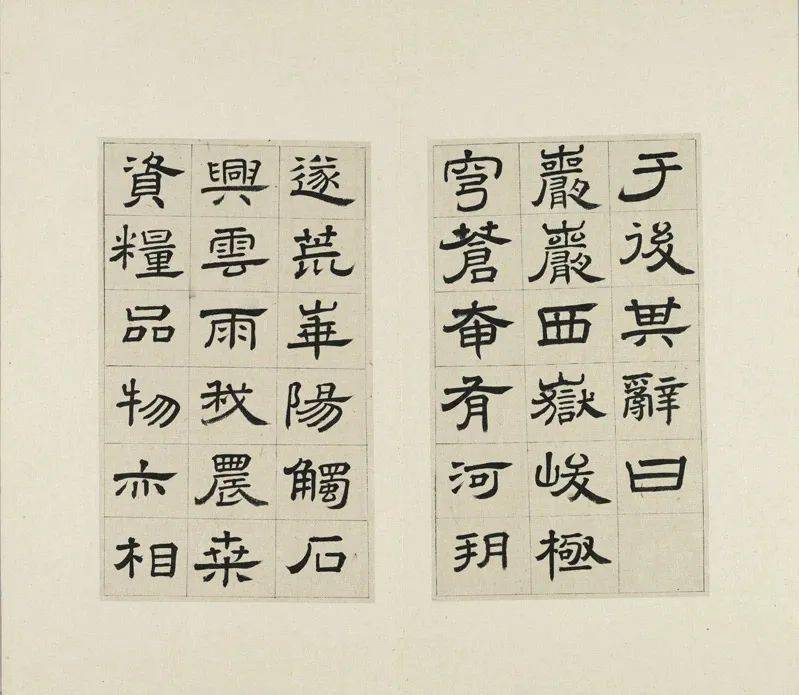 于後其辭曰
巖巖西嶽峻極
穹蒼奄有河朔
遂荒華陽觸石
興雲雨我農桑
資糧品物亦相